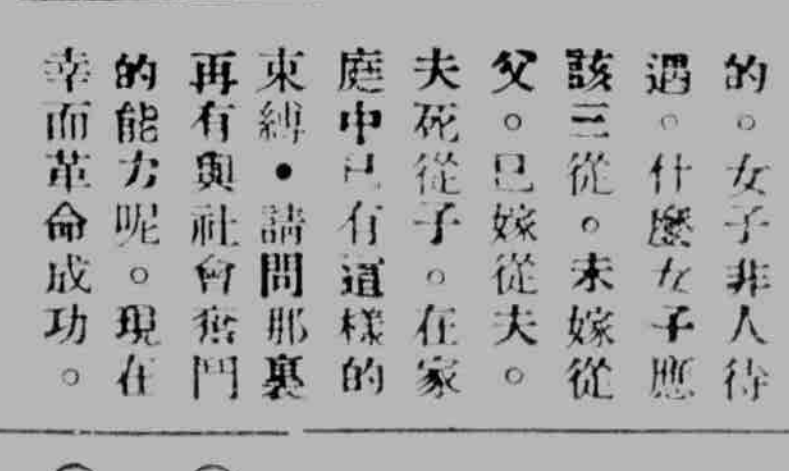 的。女子非人待
遇。什麼女子應
該三從。未嫁從
父。已嫁從夫。
夫死從子。在家
庭中已有這樣的
束縛●請問那裏
再有與社會奮鬥
的能力呢。現在
幸而革命成功。